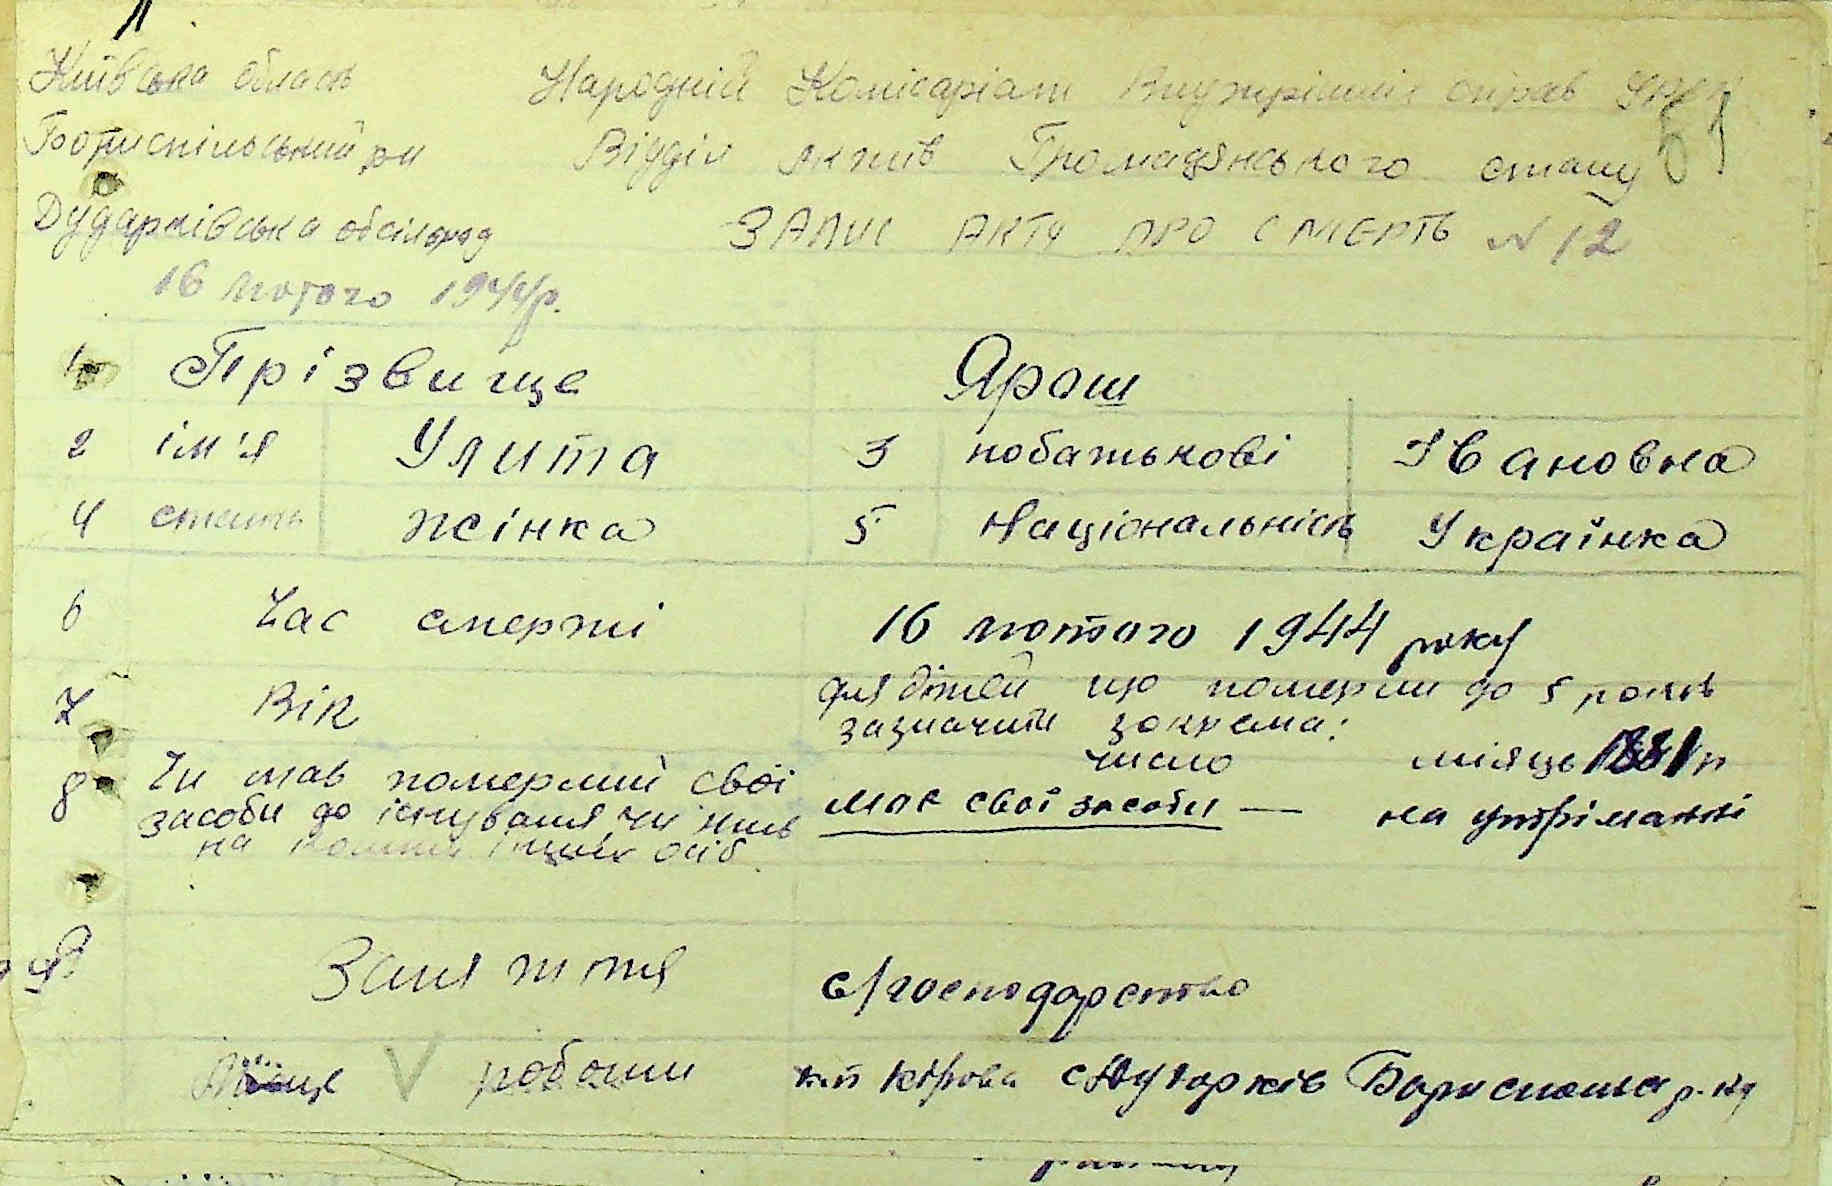 Київська область Народній Комісаріат Внутрішніх справ УРСР
Бориспільський р-н Відділ Актів Громадянського стану 51
Дударківська обсільрад ЗАПИС АКТУ ПРО СМЕРТЬ № 12
16 лютого 1944 р.
1 Прізвище Ярош
2 ім'я Улита 3 побатькові Івановна
4 стать жінка 5 Національність Українка
6 Час смерті 16 лютого 1944 року
7 Вік для дітей що померли до 5 років
зазначити зокрема:
число місяць 1881 р
8 Чи мав померлий свої
засоби до існування чи жив має свої засоби — на утріманні
на кошти інших осіб
9 Заняття с/господарство
Місце роботи к-п Кірова с Дударків Бориспольск р-ну